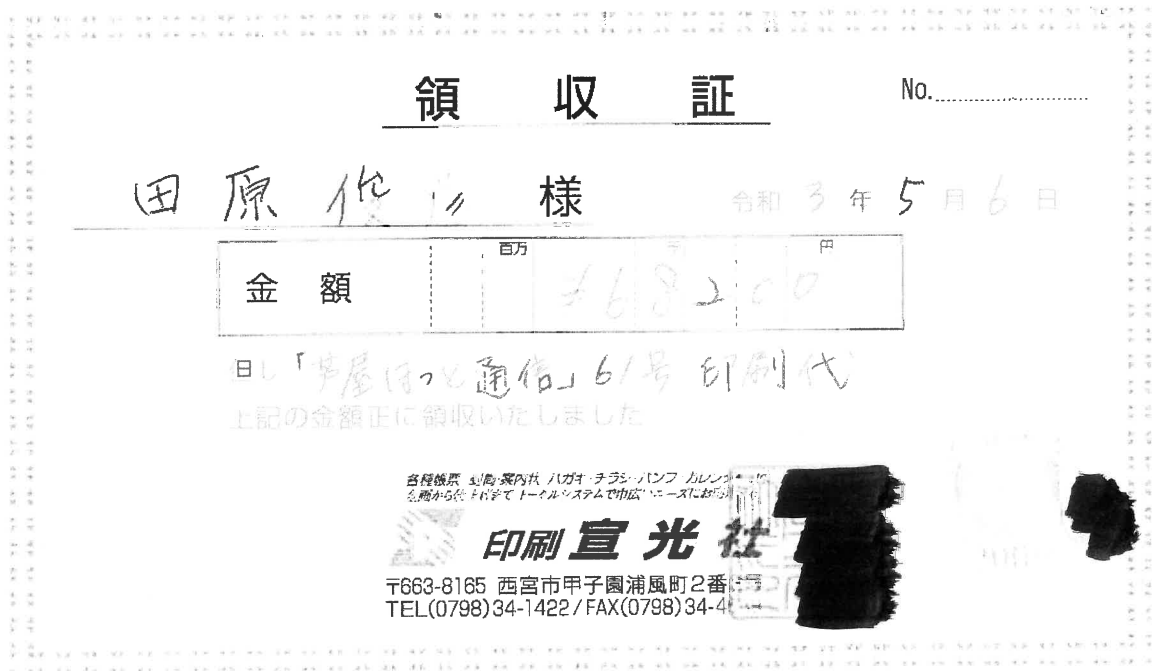 領収証
No.
田原俊彦 様
令和 3年 5月 6日
金額 百万 千 円
¥68200
但し「芦屋ほっと通信」61号 印刷代
上記の金額正に領収いたしました
各種帳票 封筒・案内状 ハガキ・チラシ・パンフ カレンダー
名刺から仕上げまで トータルシステムで巾広いニーズにお応え
印刷 宣光社
〒663-8165 西宮市甲子園浦風町2番
TEL(0798)34-1422/FAX(0798)34-4